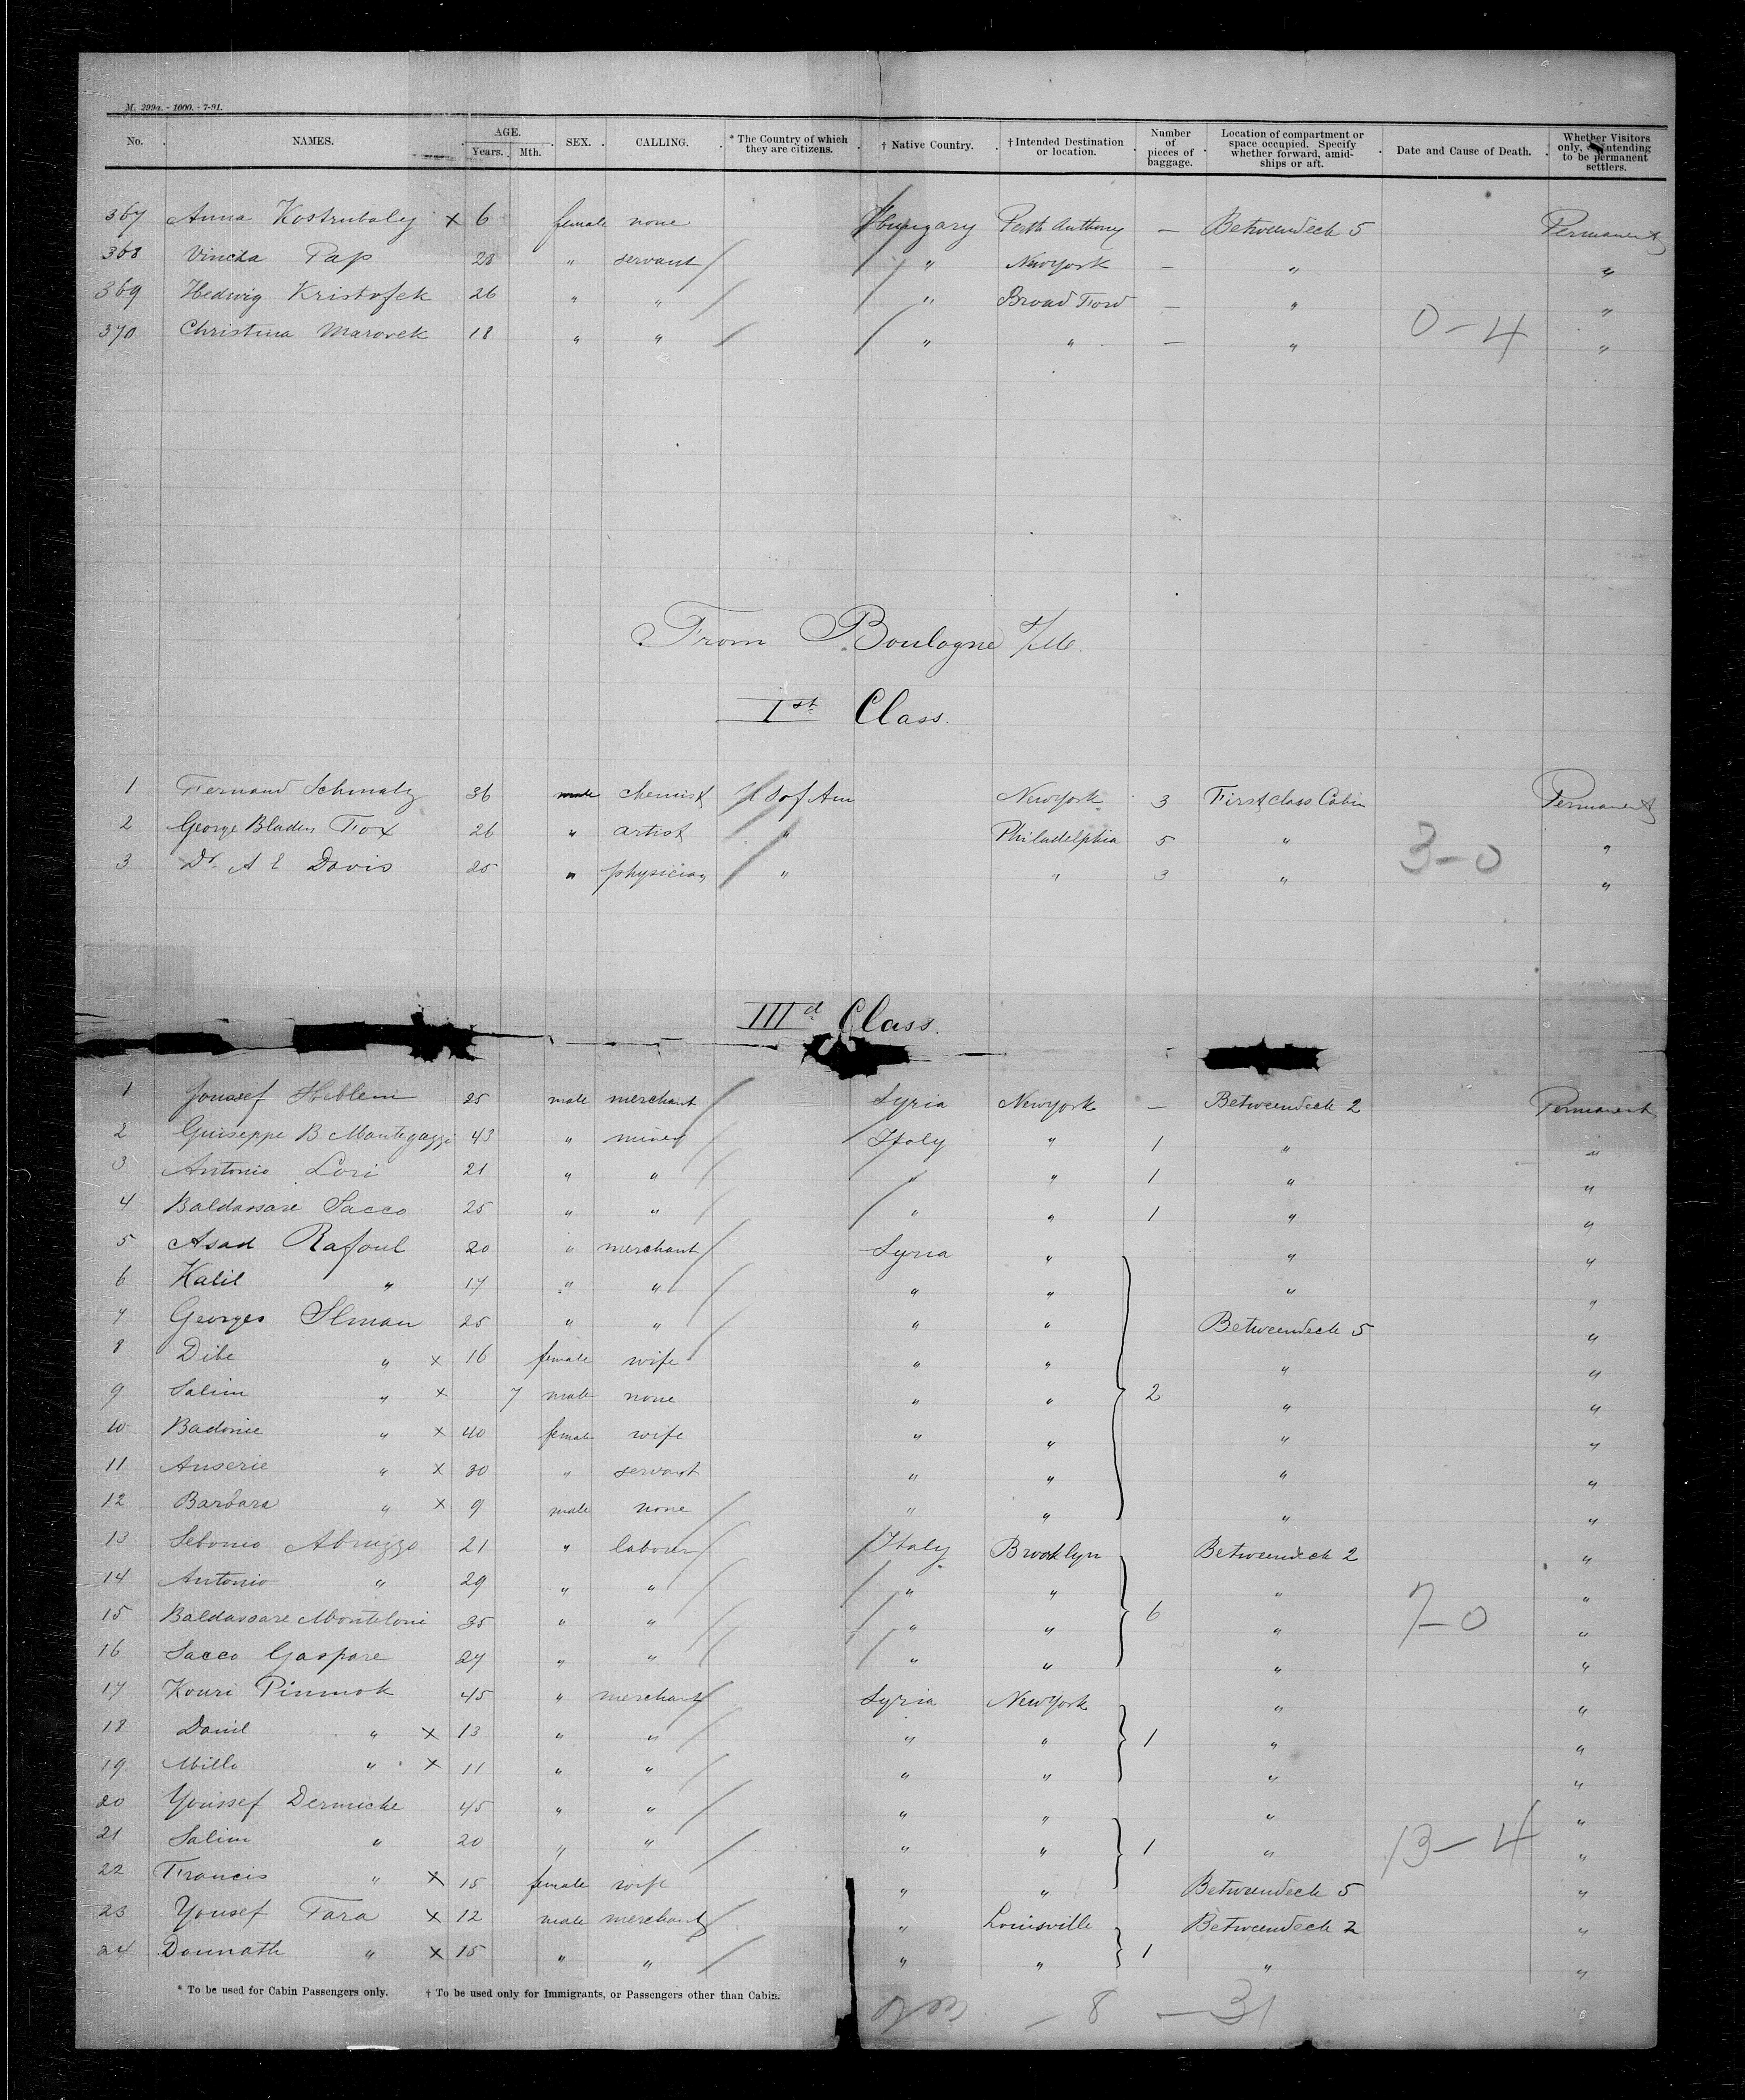 M. 299a. - 1000. - 7-91.
No. NAMES. AGE. Years. Mth. SEX. CALLING. * The Country of which they are citizens. † Native Country. † Intended Destination or location. Number of pieces of baggage. Location of compartment or space occupied. Specify whether forward, amidships or aft. Date and Cause of Death. Whether Visitors only, intending to be permanent settlers.
367 Anna Kostrubaly x 6 female none Hungary Perth Anthony — Betweendeck 5 Permanent
368 Vincza Pap 28 " servant " New York — " "
369 Hedwig Kristofek 26 " " " Broad Ford — " "
370 Christina Marovek 18 " " " " — " 0-4 "
From Boulogne s/M.
Ist Class.
1 Fernand Schmalz 36 male chemist U S of Am New York 3 First class Cabin Permanent
2 George Bladen Fox 26 " artist " Philadelphia 5 " "
3 Dr. A E Davis 25 " physician " " 3 " 3-0 "
IIId Class.
1 Joussef Heblem 25 male merchant Syria New York — Betweendeck 2 Permanent
2 Guiseppe B Mantegazzi 43 " miner Italy " 1 " "
3 Antonio Lori 21 " " " " 1 " "
4 Baldassare Sacco 25 " " " " 1 " "
5 Asad Rafoul 20 " merchant Syria " " "
6 Kalil " 17 " " " " " "
7 Georges Slman 25 " " " " Betweendeck 5 "
8 Dibe " x 16 female wife " " " "
9 Salim " x 7 male none " " 2 " "
10 Badonie " x 40 female wife " " " "
11 Anserie " x 30 " servant " " " "
12 Barbara " x 9 male none " " " "
13 Sebonio Abruzzo 21 " laborer Italy Brooklyn Betweendeck 2 "
14 Antonio " 29 " " " " " "
15 Baldassare Monteloni 35 " " " " 6 " 7-0 "
16 Sacco Gaspare 27 " " " " " "
17 Kouri Pinmok 45 " merchant Syria New York " "
18 Danil " x 13 " " " " 1 " "
19 Mills " x 11 " " " " " "
20 Youssef Dermiche 45 " " " " " "
21 Salim " 20 " " " " 1 " 13-4 "
22 Francis " x 15 female wife " " Betweendeck 5 "
23 Yousef Tara x 12 male merchant " Louisville Betweendeck 2 "
24 Dounath " x 15 " " " " 1 " "
* To be used for Cabin Passengers only. † To be used only for Immigrants, or Passengers other than Cabin.
- 8 - 31